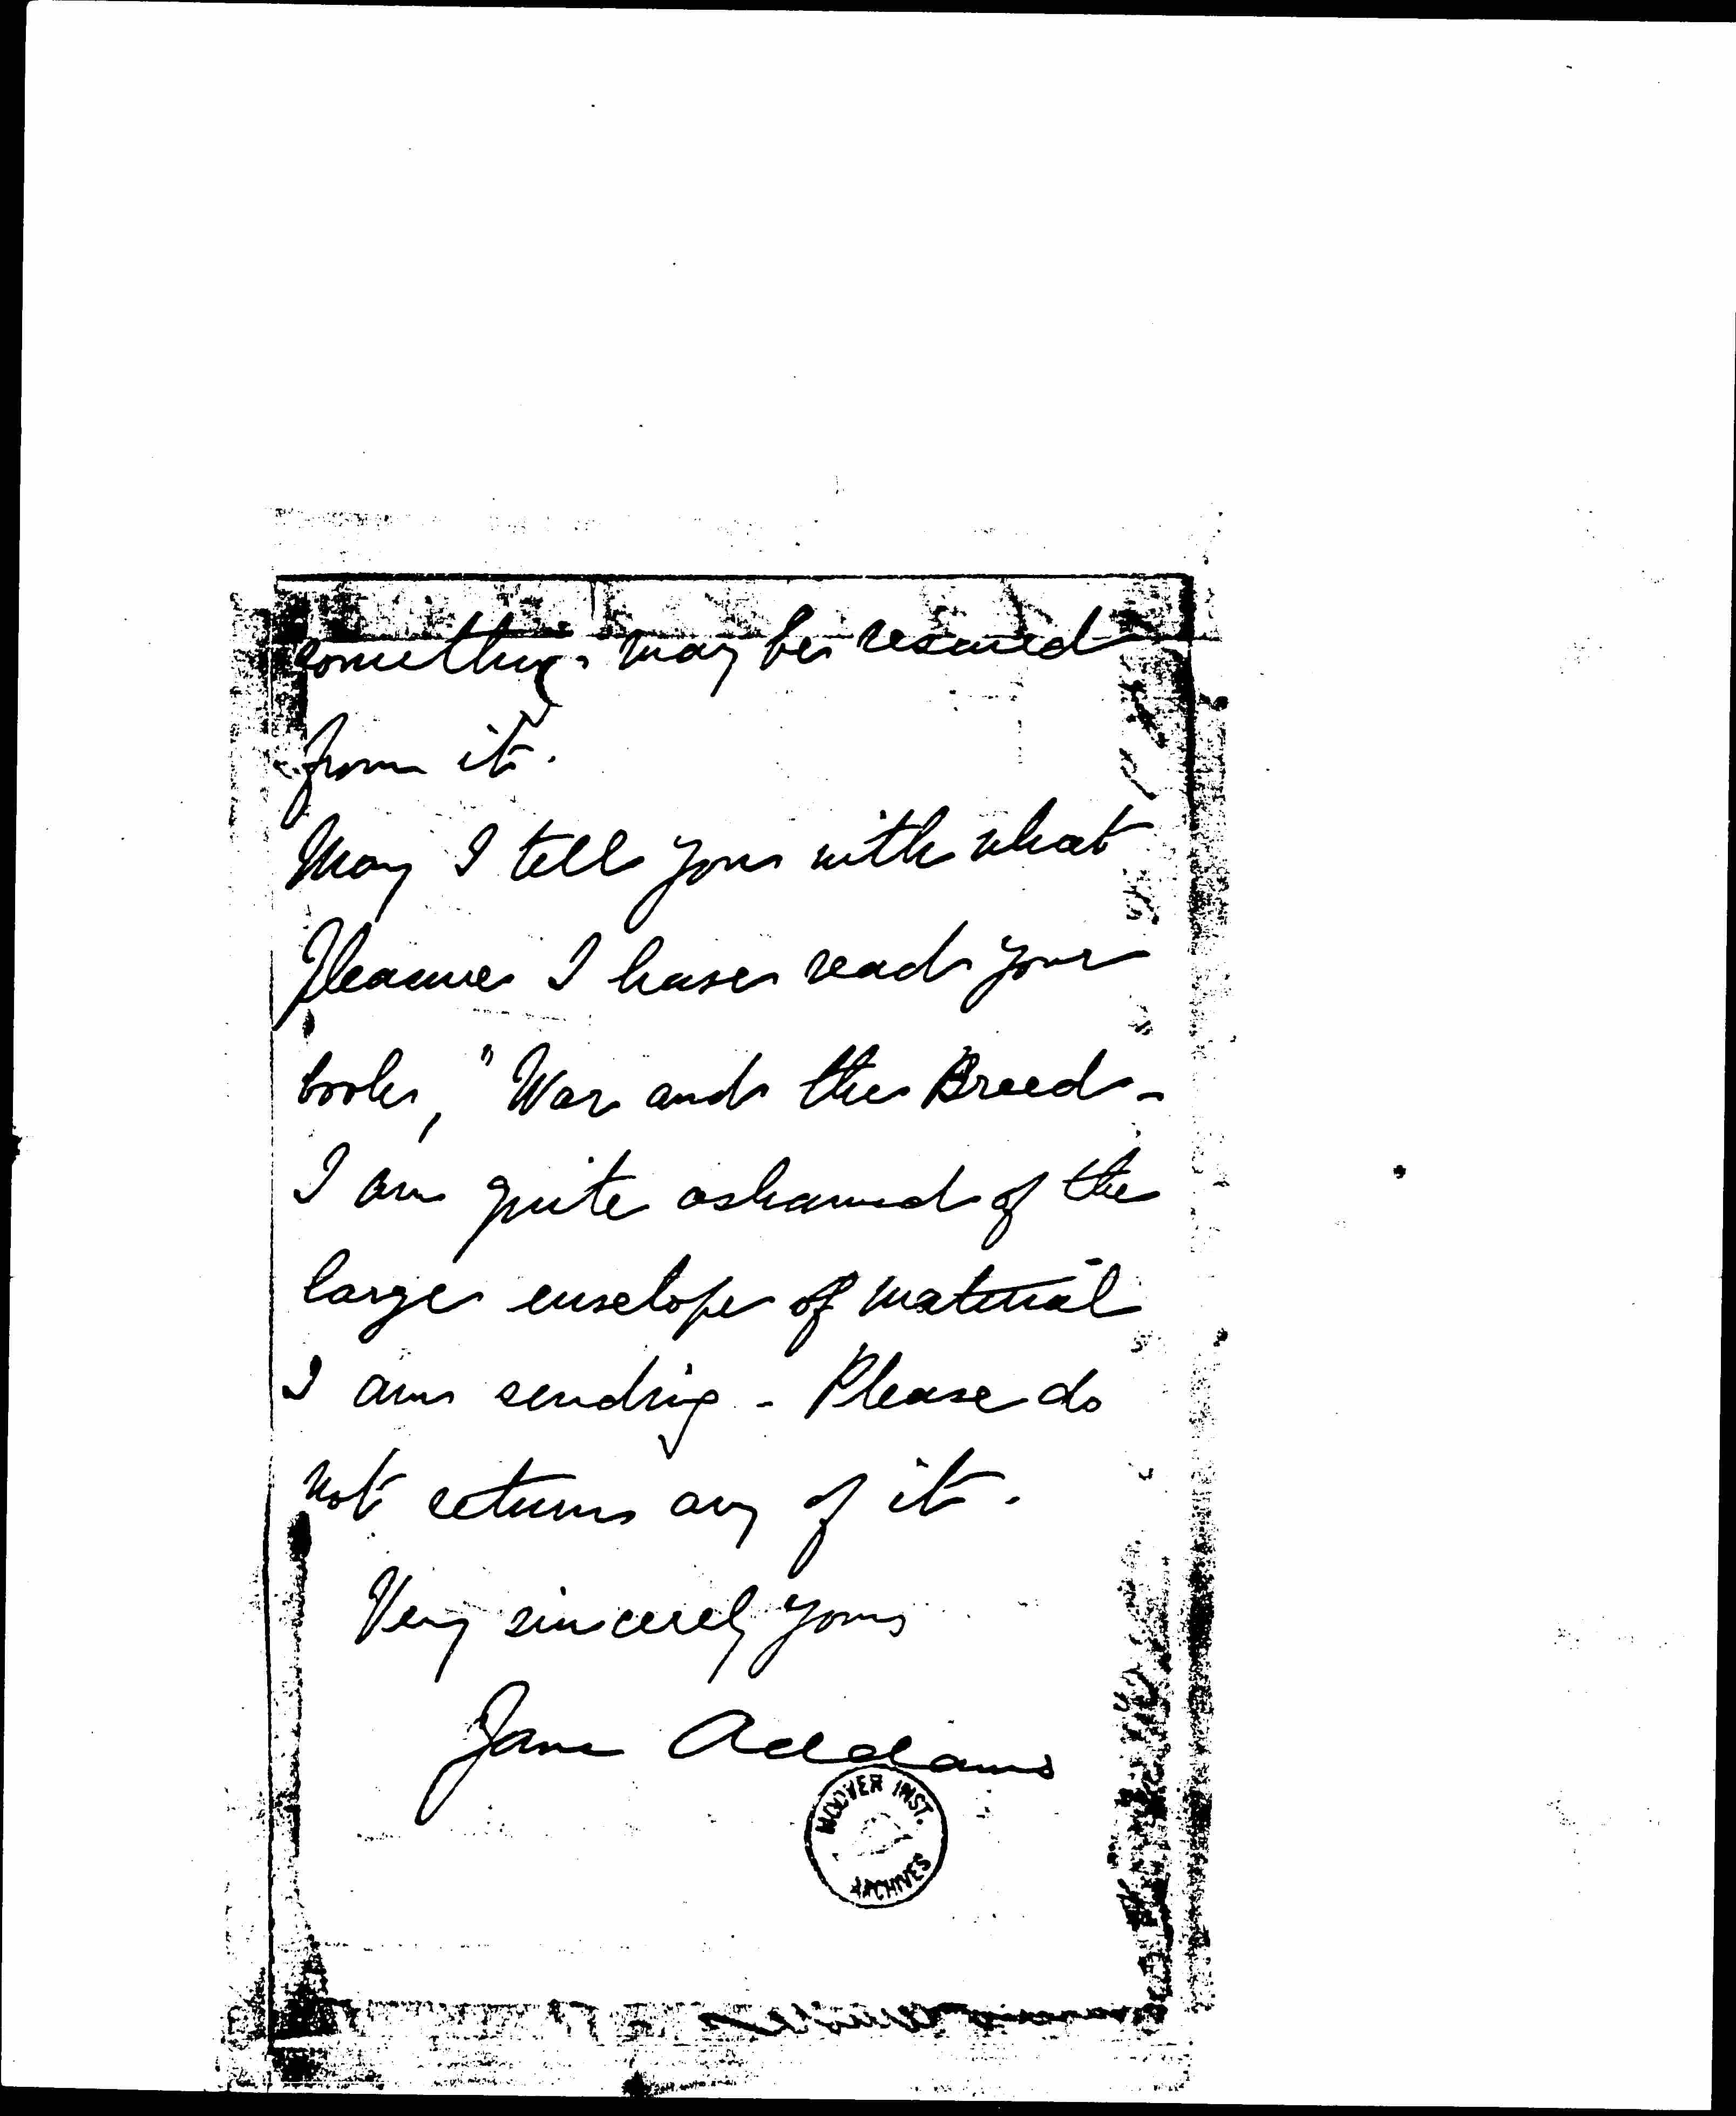 something may be rescued
from it.
May I tell you with what
pleasure I have read your
book, "War and the Breed -
I am quite ashamed of the
large envelope of material
I am sending - Please do
not return any of it.
Very sincerely yours
Jane Addams
HOOVER INST.
ARCHIVES